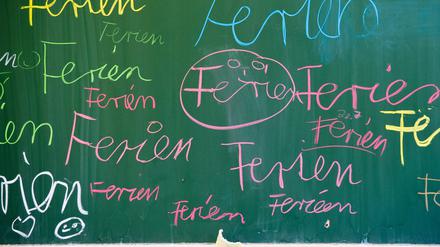 Ferien
Ferien
Ferien
Ferien
Ferien
Ferien
Ferien
Ferien
Fe
en
Ferien
Ferien
rien
Ferien
Ferien
Ferien
Fe